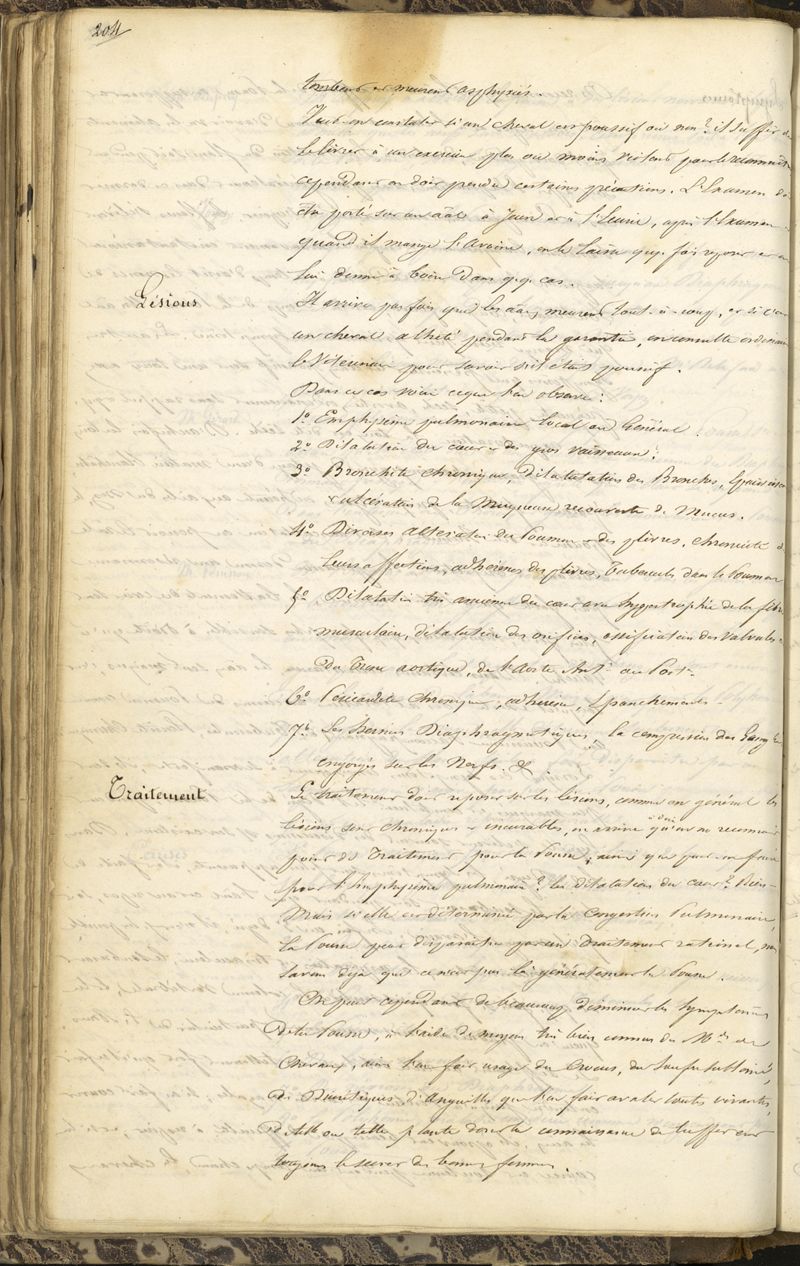 204
tombent et meurent asphyxiés.
Veut-on constater si un cheval est poussif ou non? il suffit de
le livrer à un exercice plus ou moins violent pour le reconnaître
cependant on doit prendre certaines précautions. L'Examen doit
être porté sur un aal à jeun et à l'Ecurie, après l'Examen
quand il mange l'Avoine, on le laisse qqe fois reposer et on
lui donne à boire dans qqe cas.
Lésions
Il arrive parfois que les aaux meurent tout-à-coup, et si c'est
un cheval acheté pendant la garantie, on consulte ordinairement
le Vétérinaire pour savoir s'il était poussif.
Dans ce cas voici ce que l'on observe:
1o Emphysème pulmonaire local ou Général.
2o Dilatation du cœur et des gros vaisseaux.
3o Bronchite chronique, dilatation des Bronches, épaississement
et ulcération de la Muqueuse recouverte de Mucus.
4o Diverses altérations du Poumon et des plèvres, chronicité de
leurs affections, adhérences des plèvres, Tubercules dans le Poumon
5o Dilatation très ancienne du cœur avec hypertrophie de la fibre
musculaire, dilatation des orifices, ossification des Valvules
du Tronc aortique, de l'Aorte Antre ou Postre
6o Péricardite chronique, adhésion, épanchements.
7o Les Hernies Diaphragmatiques, la compression des Gangl.
engorgés sur les Nerfs. &.
Traitement
Le traitement doit reposer sur les lésions, comme en général les
lésions sont chroniques et incurables, on arrive à dire qu'on ne reconnait
point de Traitement pour la Pousse, ainsi que peut-on faire
pour l'Emphysème pulmonaire? les dilatations du cœur? Rien-
Mais si elle est déterminée par la Congestion Pulmonaire,
la Pousse peut disparaître par un Traitement rationnel, nous
savons déjà que ce n'est pas là généralement la Pousse.
On peut cependant de beaucoup diminuer les symptômes
de la Pousse, à l'aide de moyens très bien connus des Mds de
Chevaux, ainsi l'on fait usage du Crocus, du soufre sublimé,
de Diurétiques, d'Anguilles que l'on fait avaler toutes vivantes,
de telle ou telle plante dont la connaissance
toujours le secret des bonnes femmes.